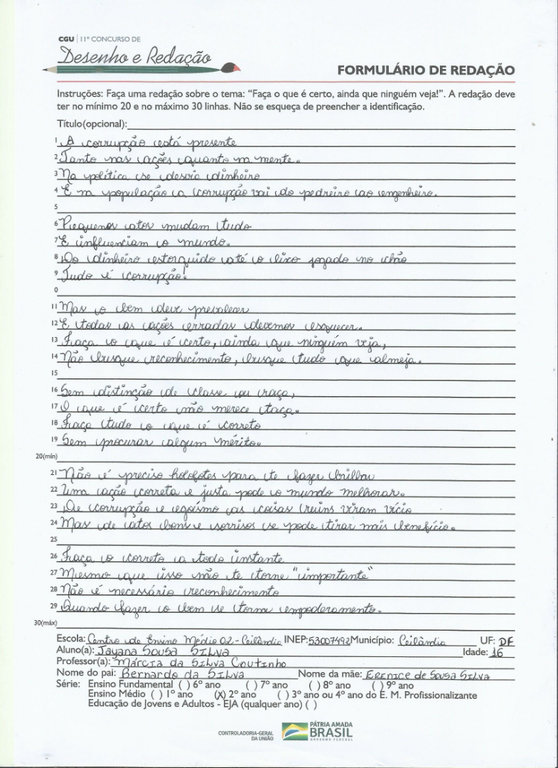 CGU | 11º CONCURSO DE
Desenho e Redação
FORMULÁRIO DE REDAÇÃO
Instruções: Faça uma redação sobre o tema: "Faça o que é certo, ainda que ninguém veja!". A redação deve
ter no mínimo 20 e no máximo 30 linhas. Não se esqueça de preencher a identificação.
Título(opcional):
1 A corrupção está presente
2 Tanto nas ações quanto na mente.
3 Na política se desvia dinheiro
4 E na população a corrupção vai do pedreiro ao engenheiro.
5
6 Pequenos atos mudam tudo
7 E influenciam o mundo.
8 Do dinheiro estorquido até o lixo jogado no chão
9 Tudo é corrupção!
0
11 Mas o bem deve prevalecer
12 E todas as ações erradas devemos esquecer.
13 Faça o que é certo, ainda que ninguém veja,
14 Não busque reconhecimento, busque tudo que almeja.
15
16 Sem distinção de classe ou raça,
17 O que é certo não merece taça.
18 Faça tudo o que é correto
19 Sem procurar algum mérito.
20(min)
21 Não é preciso holofotes para te fazer brilhar
22 Uma ação correta e justa pode o mundo melhorar.
23 De corrupção e egoísmo as coisas ruins viram vício
24 Mas de atos bons e sorrisos se pode tirar mais benefício.
25
26 Faça o correto a todo instante
27 Mesmo que isso não te torne "importante"
28 Não é necessário reconhecimento
29 Quando fazer o bem se torna empoderamento.
30(máx)
Escola: Centro de Ensino Médio 02 - Ceilândia INEP: 53007492 Município: Ceilândia UF: DF
Aluno(a): Tayana Sousa Silva Idade: 16
Professor(a): Márcia da Silva Coutinho
Nome do pai: Bernardo da Silva Nome da mãe: Erenice de Sousa Silva
Série: Ensino Fundamental ( ) 6º ano ( ) 7º ano ( ) 8º ano ( ) 9º ano
Ensino Médio ( ) 1º ano (X) 2º ano ( ) 3º ano ou 4º ano do E. M. Profissionalizante
Educação de Jovens e Adultos - EJA (qualquer ano) ( )
CONTROLADORIA-GERAL
DA UNIÃO
PÁTRIA AMADA
BRASIL
GOVERNO FEDERAL